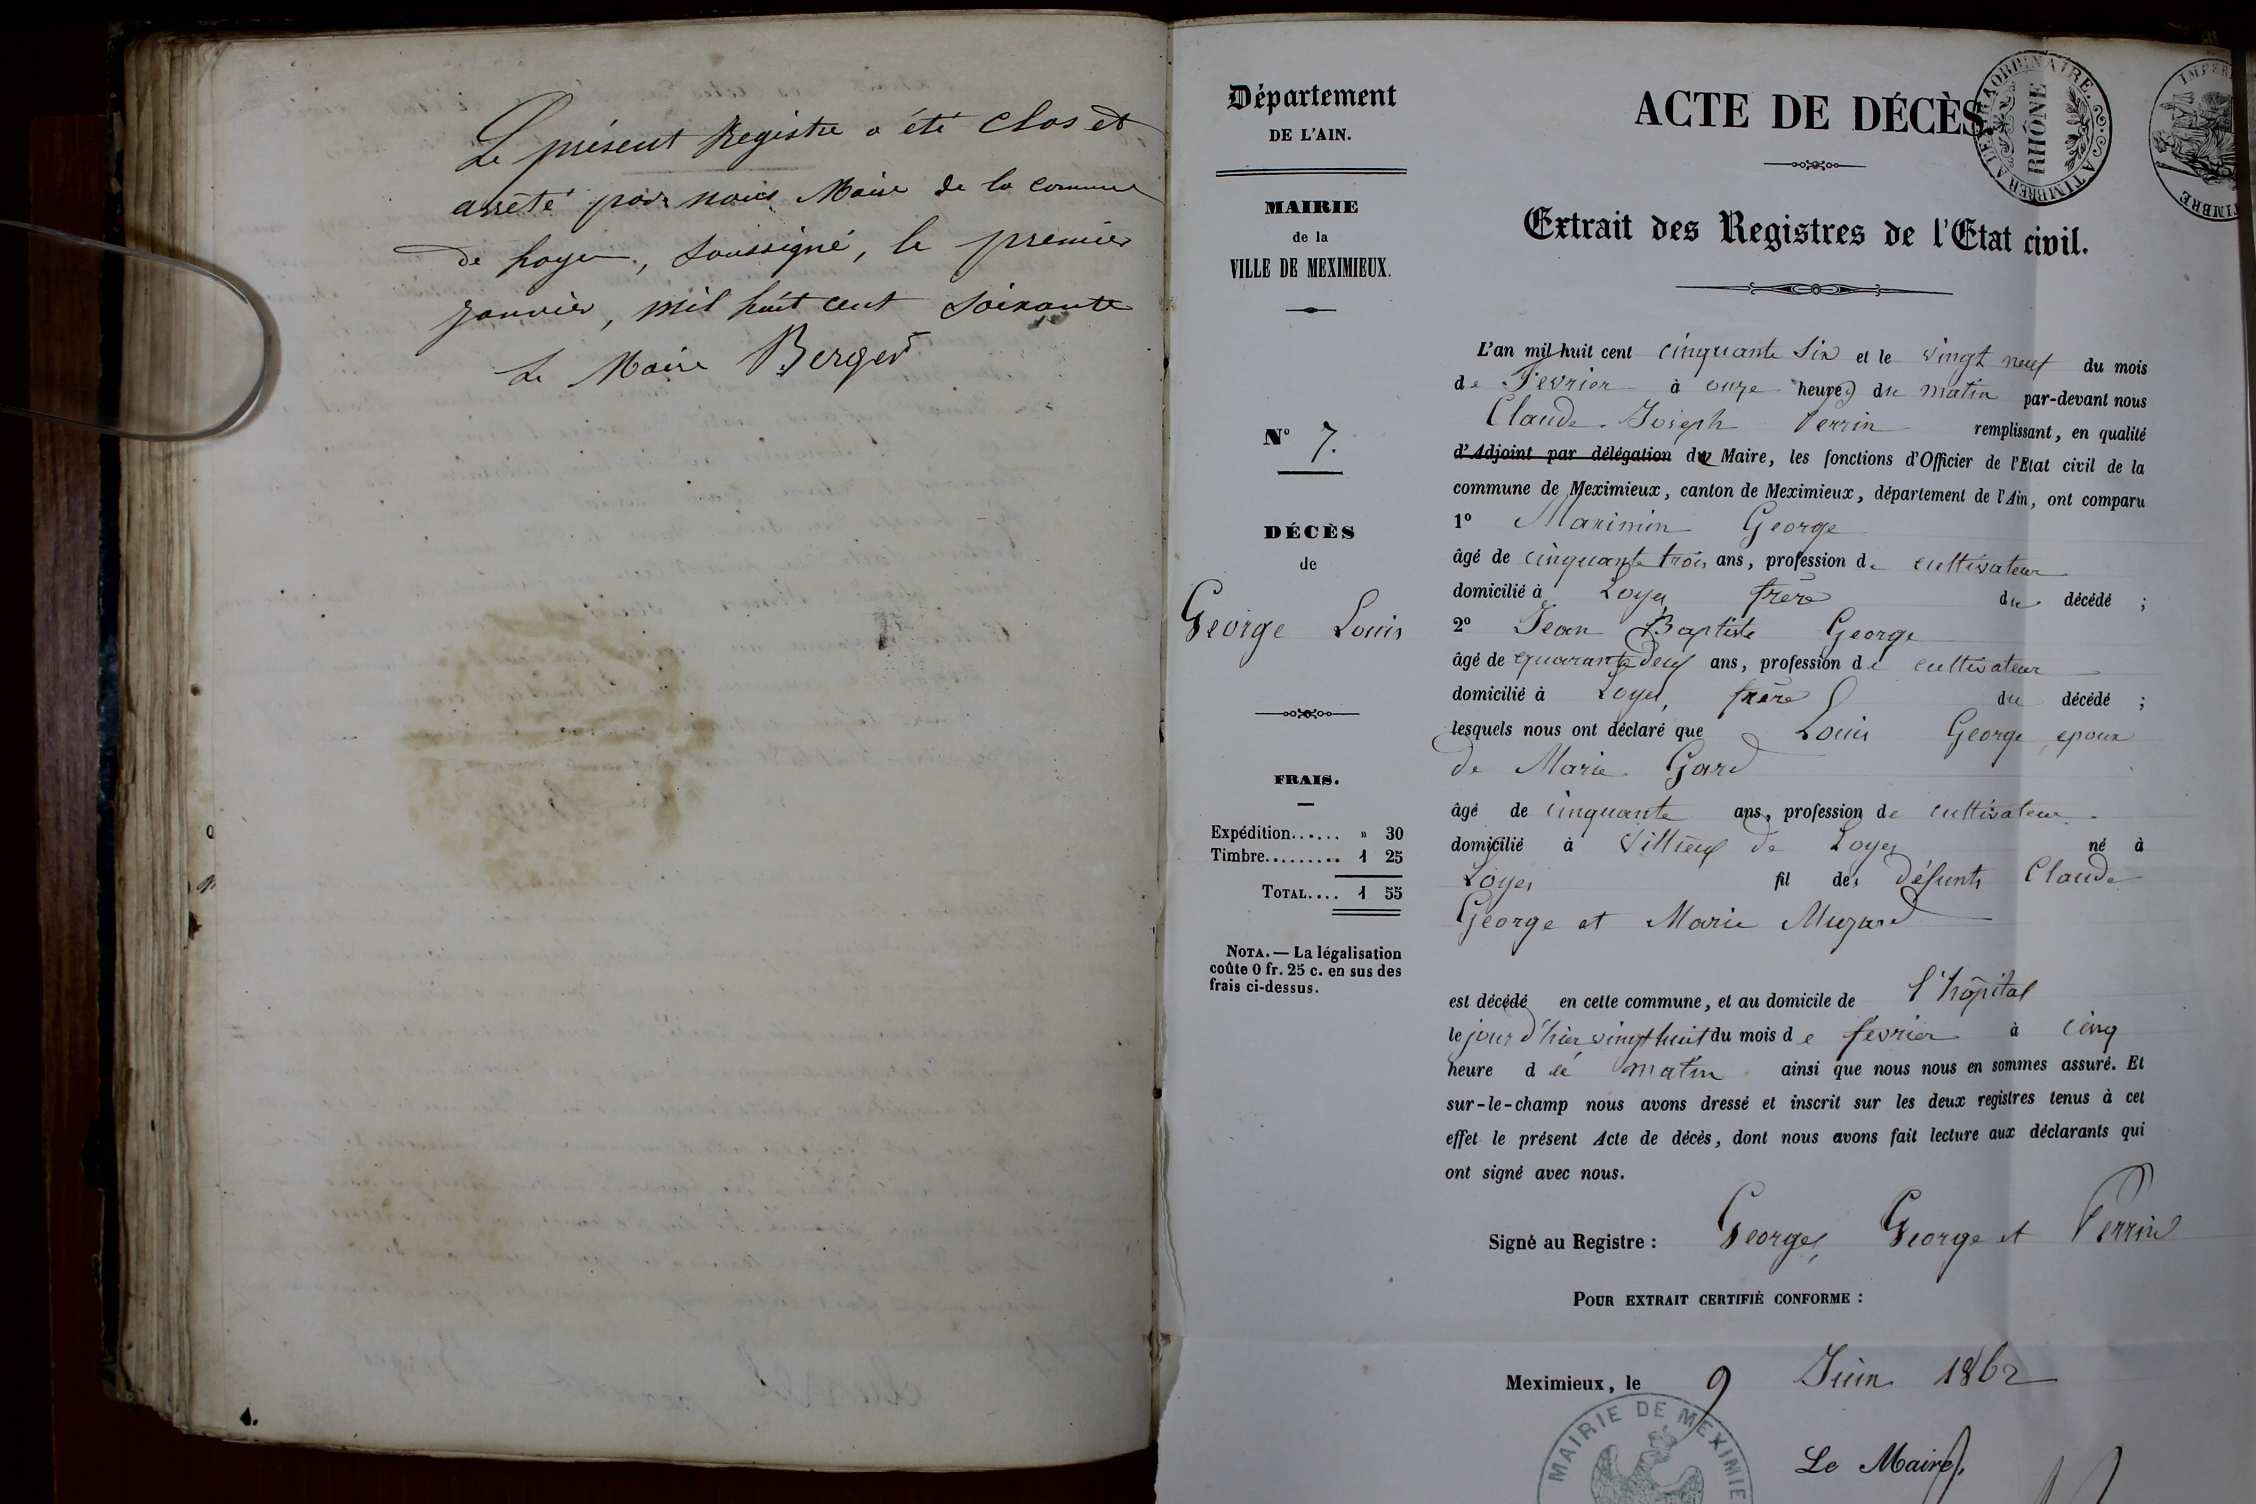 Le présent Registre a été clos et
arrêté par nous Maire de la commune
de Loyes, soussigné, le premier
janvier, mil huit cent soixante
Le Maire Berger
Département
DE L'AIN.
MAIRIE
de la
VILLE DE MEXIMIEUX.
N° 7.
DÉCÈS
de
George Louis
FRAIS.
Expédition...... » 30
Timbre......... 1 25
TOTAL.... 1 55
NOTA. — La légalisation
coûte 0 fr. 25 c. en sus des
frais ci-dessus.
ACTE DE DÉCÈS.
A TIMBRER A L'EXTRAORDINAIRE.
RHÔNE
TIMBRE IMPER
Extrait des Registres de l'Etat civil.
L'an mil huit cent cinquante six et le vingt neuf du mois
de Fevrier à onze heures du matin par-devant nous
Claude Joseph Perrin remplissant, en qualité
d'Adjoint par délégation de Maire, les fonctions d'Officier de l'Etat civil de la
commune de Meximieux, canton de Meximieux, département de l'Ain, ont comparu
1° Maximin George
âgé de cinquante trois ans, profession de cultivateur
domicilié à Loyes frère du décédé ;
2° Jean Baptiste George
âgé de quarante deux ans, profession de cultivateur
domicilié à Loyes, frère du décédé ;
lesquels nous ont déclaré que Louis George, epoux
de Marie Gard
âgé de cinquante ans, profession de cultivateur
domicilié à Villieux de Loyes né à
Loyes fil des défunts Claude
George et Marie Muzard
est décédé en cette commune, et au domicile de l'hôpital
le jour d'hier vingt huit du mois de fevrier à cinq
heure du matin ainsi que nous nous en sommes assuré. Et
sur-le-champ nous avons dressé et inscrit sur les deux registres tenus à cet
effet le présent Acte de décès, dont nous avons fait lecture aux déclarants qui
ont signé avec nous.
Signé au Registre : George, George et Perrin
POUR EXTRAIT CERTIFIÉ CONFORME :
Meximieux, le 9 Juin 1862
MAIRIE DE MEXIMIE
Le Maire,